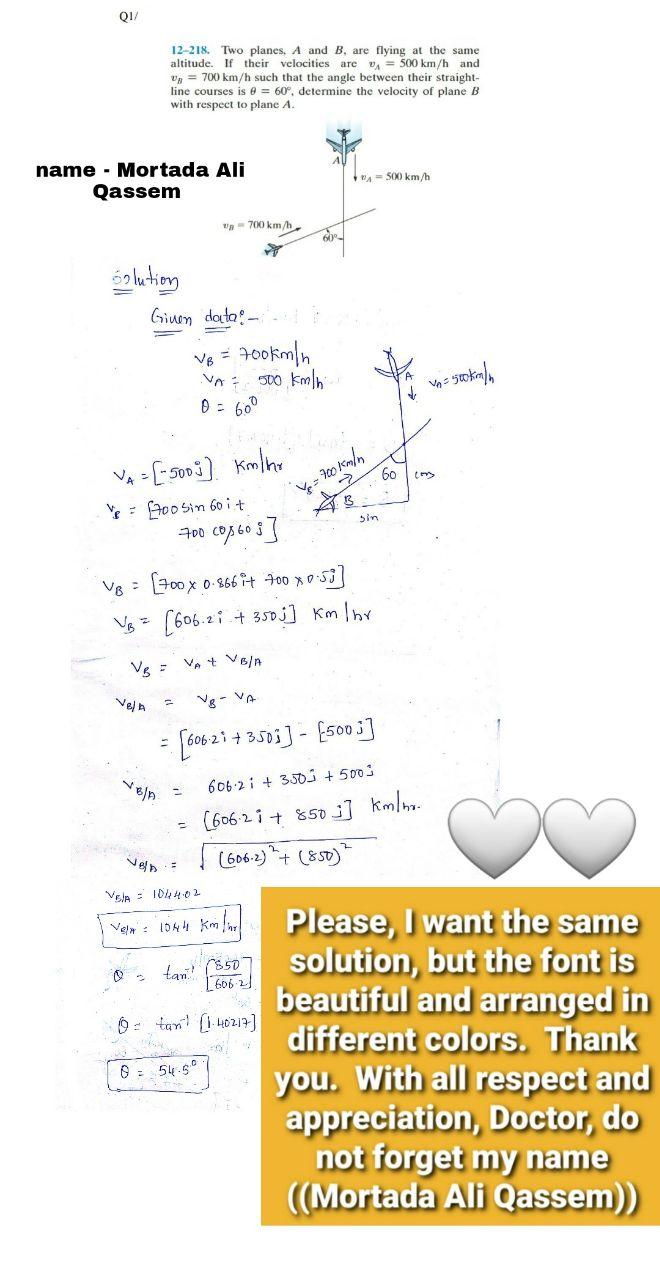 Q1/
12–218. Two planes, A and B, are flying at the same
altitude. If their velocities are vA = 500 km/h and
vB = 700 km/h such that the angle between their straight-
line courses is θ = 60°, determine the velocity of plane B
with respect to plane A.
name - Mortada Ali
Qassem
A
vA = 500 km/h
vB = 700 km/h
60°
Solution
Given data:-
VB = 700km/h
VA = 500 km/h
θ = 60°
A
VA = 500km/h
VB = 700 km/h
60
cos
B
sin
VA = [-500j] km/hr
VB = [700 sin 60 i +
700 cos 60 j]
VB = [700 x 0.866 i + 700 x 0.5j]
VB = [606.2i + 350j] km/hr
VB = VA + VB/A
VB/A = VB - VA
= [606.2i + 350j] - [-500j]
VB/A = 606.2i + 350j + 500j
= [606.2i + 850j] km/hr.
VB/A = √(606.2)² + (850)²
VB/A = 1044.02
VB/A = 1044 km/hr
θ = tan⁻¹ [850/606.2]
θ = tan⁻¹ [1.40217]
θ = 54.5°
Please, I want the same
solution, but the font is
beautiful and arranged in
different colors. Thank
you. With all respect and
appreciation, Doctor, do
not forget my name
((Mortada Ali Qassem))